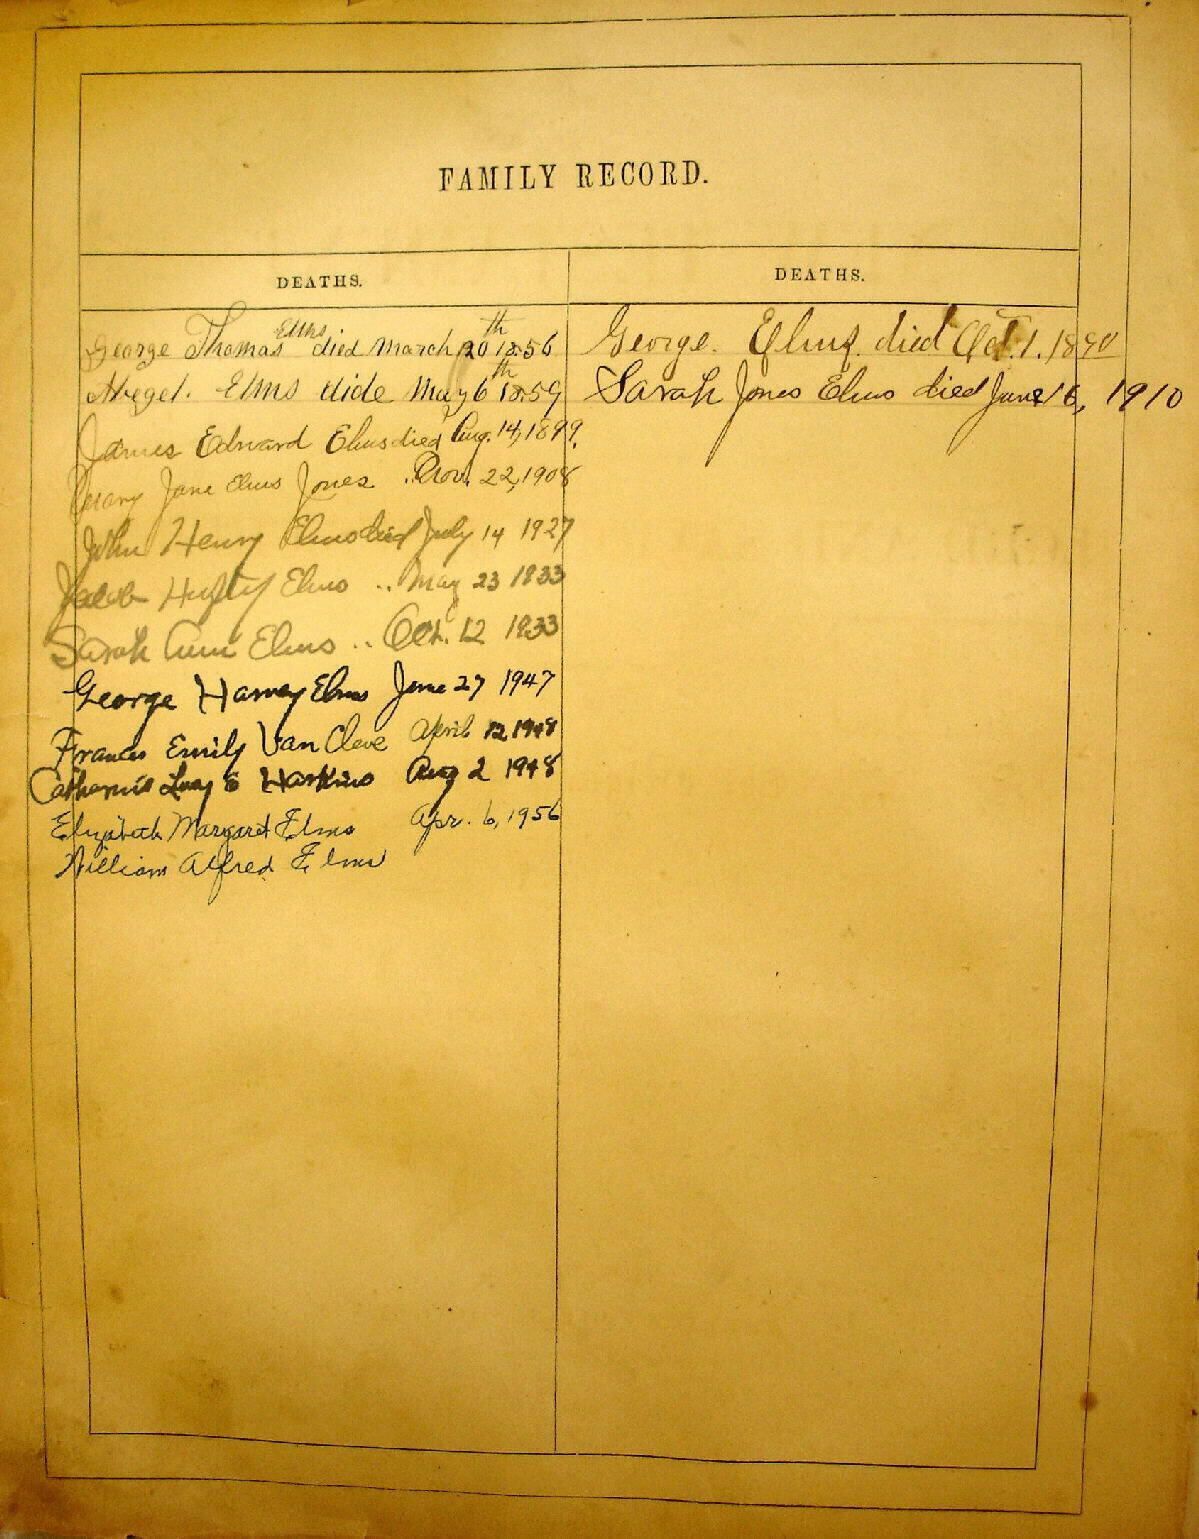 FAMILY RECORD.
DEATHS.
George Thomas Elms died March 20th 1856
Abegel. Elms dide May 6th 1859
James Edward Elms died Aug. 14, 1899.
Mary Jane Elms Jones .. Nov. 22, 1908
John Henry Elms died July 14 1927
Jacob Hufty Elms .. May 23 1933
Sarah Ann Elms .. Oct. 12 1933
George Harvey Elms June 27 1947
Frances Emily Van Cleve April 12 1948
Lucy E Harkins Aug 2 1948
Elizabeth Margaret Elms Apr. 6, 1956
William Alfred Elms
DEATHS.
George. Elms. died Oct. 1. 1890
Sarah Jones Elms died June 16, 1910